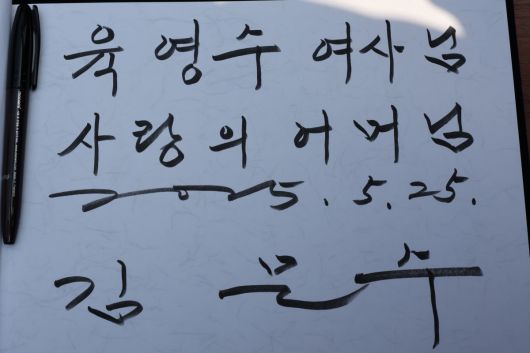 육영수 여사님
사랑의 어머님
2025. 5. 25.
김문수